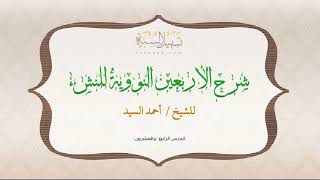 تسهيل السنة
شرح الأربعين النووية للنشء
للشيخ / أحمد السيد
الدرس الرابع والعشرون